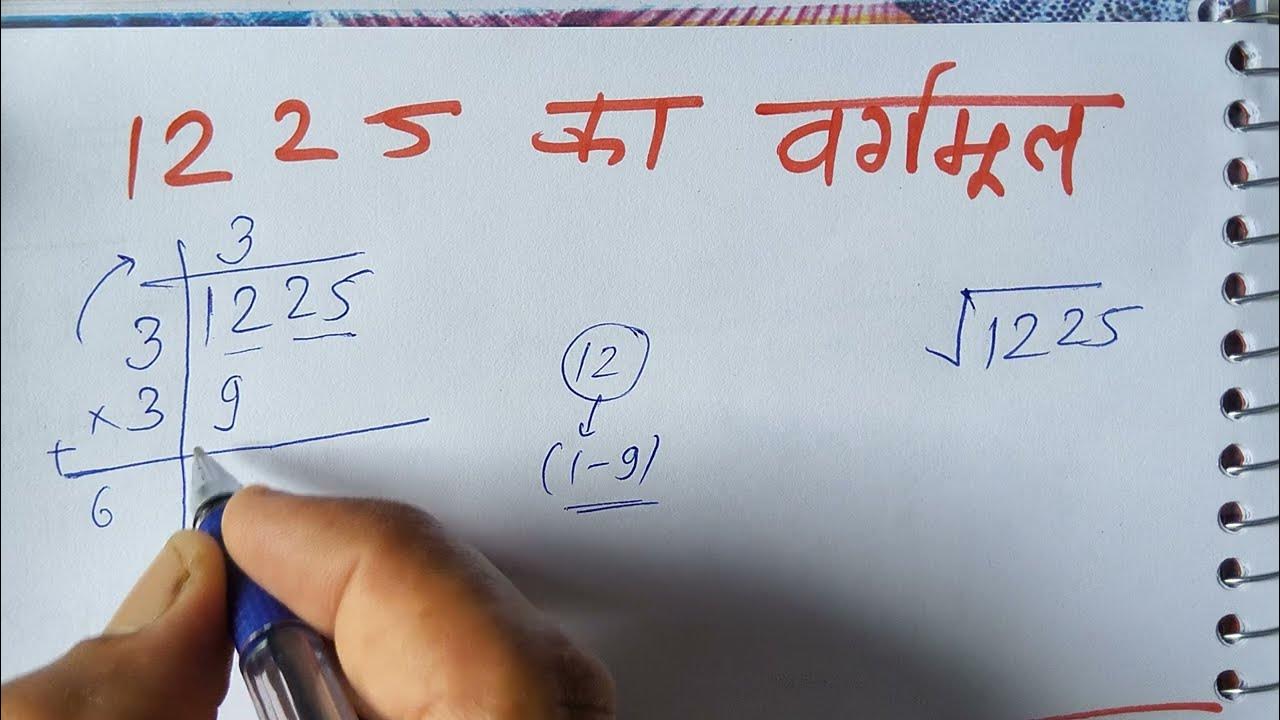 1225 का वर्गमूल
3
3 1225
×3 9
+
6
12
(1-9)
√1225